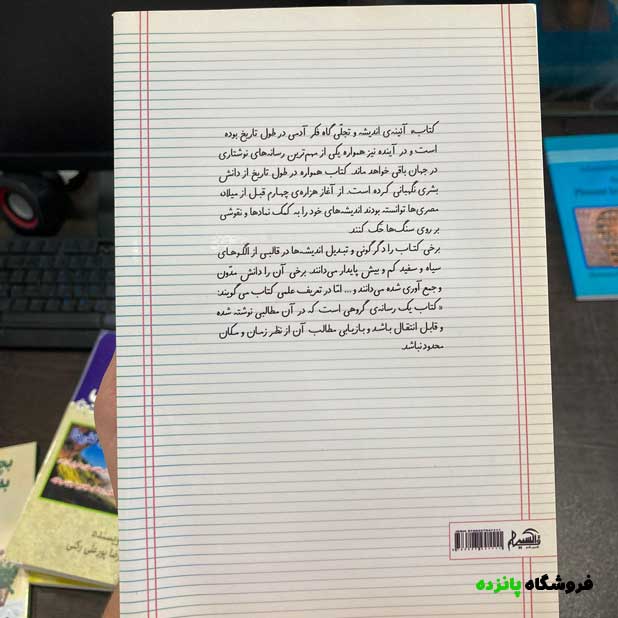 کتاب، آئینه‌ی اندیشه و تجلّی گاه فکر آدمی در طول تاریخ بوده
است و در آینده نیز همواره یکی از مهم‌ترین رسانه‌های نوشتاری
در جهان باقی خواهد ماند. کتاب همواره در طول تاریخ از دانش
بشری نگهبانی کرده است. از آغاز هزاره‌ی چهارم قبل از میلاد
مصری‌ها توانسته بودند اندیشه‌های خود را به کمک نمادها و نقوشی
بر روی سنگ‌ها حک کنند.
برخی کتاب را دگرگونی و تبدیل اندیشه‌ها در قالبی از الگوهای
سیاه و سفید کم و بیش پایدار می‌دانند. برخی آن را دانش مدّون
و جمع آوری شده می‌دانند و... امّا در تعریف علمی کتاب می‌گویند:
«کتاب یک رسانه‌ی گروهی است که در آن مطالبی نوشته شده
و قابل انتقال باشد و بازیابی مطالب آن از نظر زمان و مکان
محدود نباشد.
فروشگاه پانزده